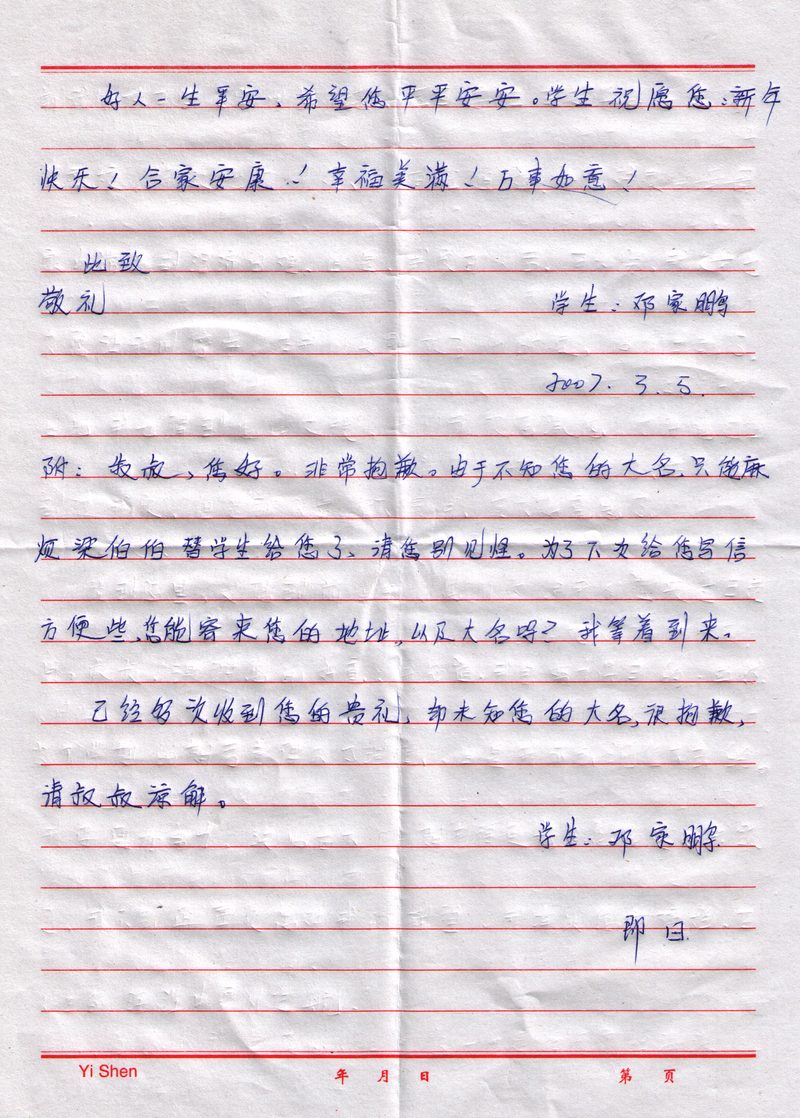 好人一生平安、希望您平平安安。学生祝愿您:新年
快乐!合家安康!幸福美满!万事如意!
此致
敬礼
学生:邓家鹏
2007.3.5.
附:敖叔、您好。非常抱歉。由于不知您的大名、只能麻
烦梁伯伯替学生给您了、请您别见怪。为了下次给您写信
方便些、您能寄来您的地址,以及大名吗?我等着到来。
已经多次收到您的贵礼,却未知您的大名,很抱歉,
请叔叔谅解。
学生:邓家鹏
即日
Yi Shen
年 月 日
第 页